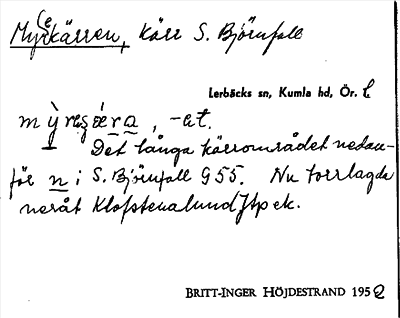 My(e)kärren, kärr S. Björnfall
Lerbäcks sn, Kumla hd, Ör. l
m ỳ re ȿæ̀ra, -et.
Det långa kärrområdet nedan-
för n i S. Björnfall G55. Nu torrlagda
neråt Klofstenalund Jtp ek.
BRITT-INGER HÖJDESTRAND 1952